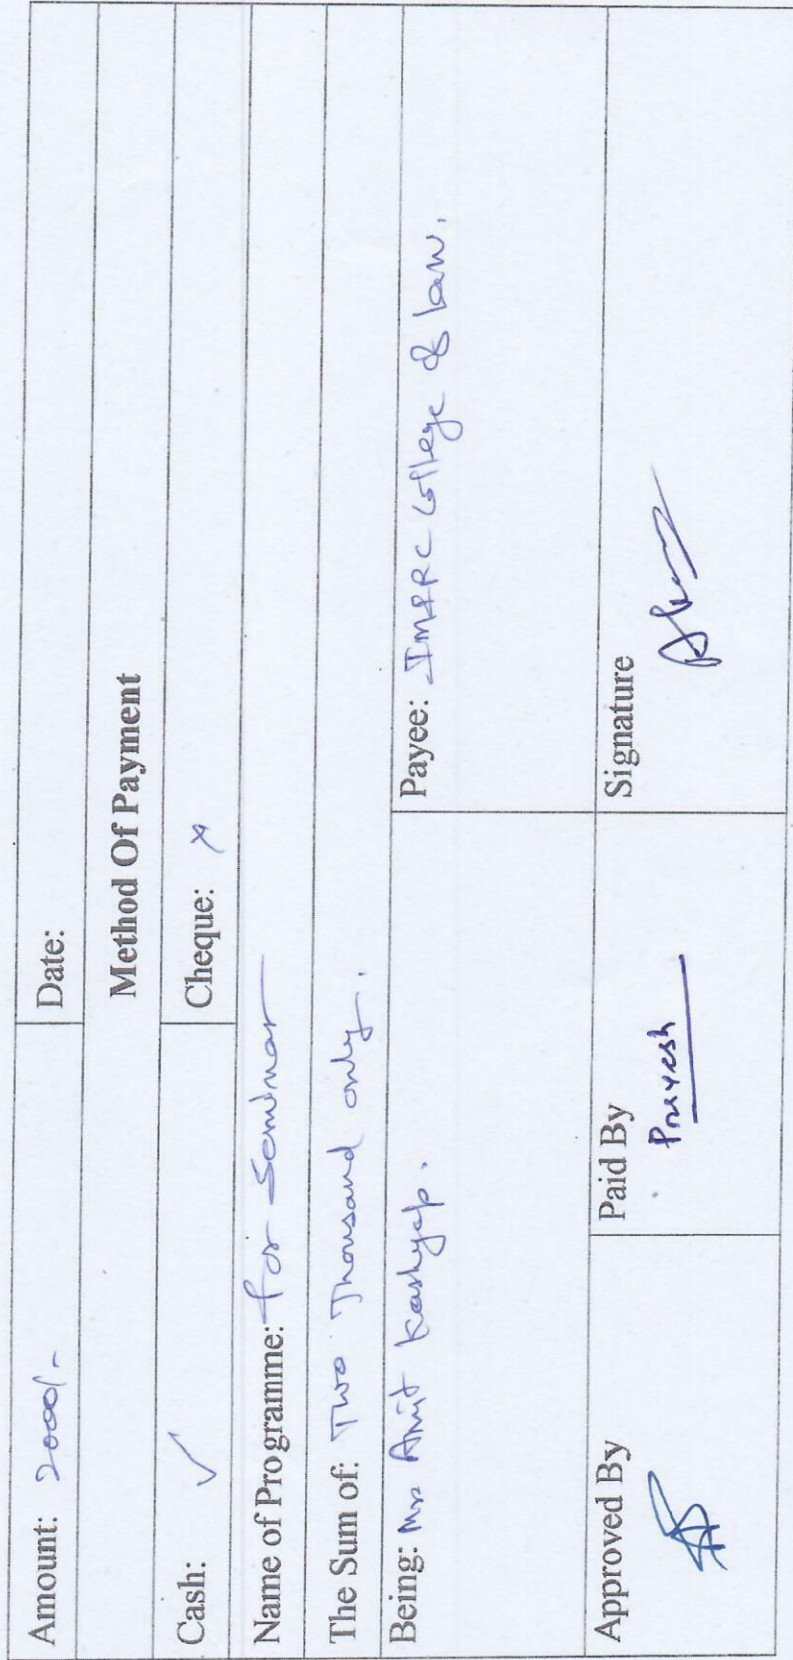 Amount: 2000/- Date:
Method Of Payment
Cash: ✓ Cheque: ✗
Name of Programme: for Seminar
The Sum of: Two Thousand only.
Being: Mr Amit Kashyap. Payee: IMPRC College of law.
Approved By Paid By Signature
Pravesh